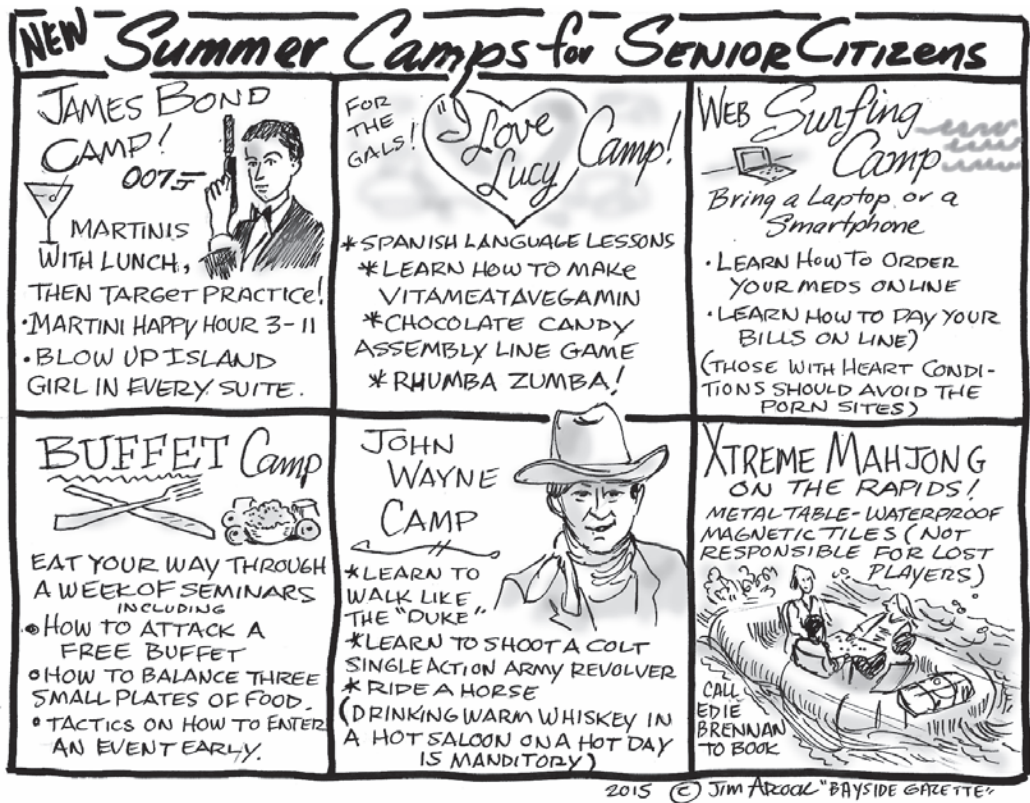 NEW Summer Camps for Senior Citizens
JAMES BOND
CAMP!
007
MARTINIS
WITH LUNCH,
THEN TARGET PRACTICE!
•MARTINI HAPPY HOUR 3-11
•BLOW UP ISLAND
GIRL IN EVERY SUITE.
FOR
THE
GALS!
I Love
Lucy
Camp!
*SPANISH LANGUAGE LESSONS
*LEARN HOW TO MAKE
VITAMEATAVEGAMIN
*CHOCOLATE CANDY
ASSEMBLY LINE GAME
*RHUMBA ZUMBA!
WEB Surfing
Camp
Bring a Laptop or a
Smartphone
•LEARN HOW TO ORDER
YOUR MEDS ONLINE
•LEARN HOW TO PAY YOUR
BILLS ON LINE)
(THOSE WITH HEART CONDI-
TIONS SHOULD AVOID THE
PORN SITES)
BUFFET Camp
EAT YOUR WAY THROUGH
A WEEK OF SEMINARS
INCLUDING
•HOW TO ATTACK A
FREE BUFFET
•HOW TO BALANCE THREE
SMALL PLATES OF FOOD.
•TACTICS ON HOW TO ENTER
AN EVENT EARLY.
JOHN
WAYNE
CAMP
*LEARN TO
WALK LIKE
THE "DUKE"
*LEARN TO SHOOT A COLT
SINGLE ACTION ARMY REVOLVER
*RIDE A HORSE
(DRINKING WARM WHISKEY IN
A HOT SALOON ON A HOT DAY
IS MANDITORY)
XTREME MAHJONG
ON THE RAPIDS!
METAL TABLE-WATERPROOF
MAGNETIC TILES (NOT
RESPONSIBLE FOR LOST
PLAYERS)
CALL
EDIE
BRENNAN
TO BOOK
2015 © Jim Adcock "BAYSIDE GAZETTE"